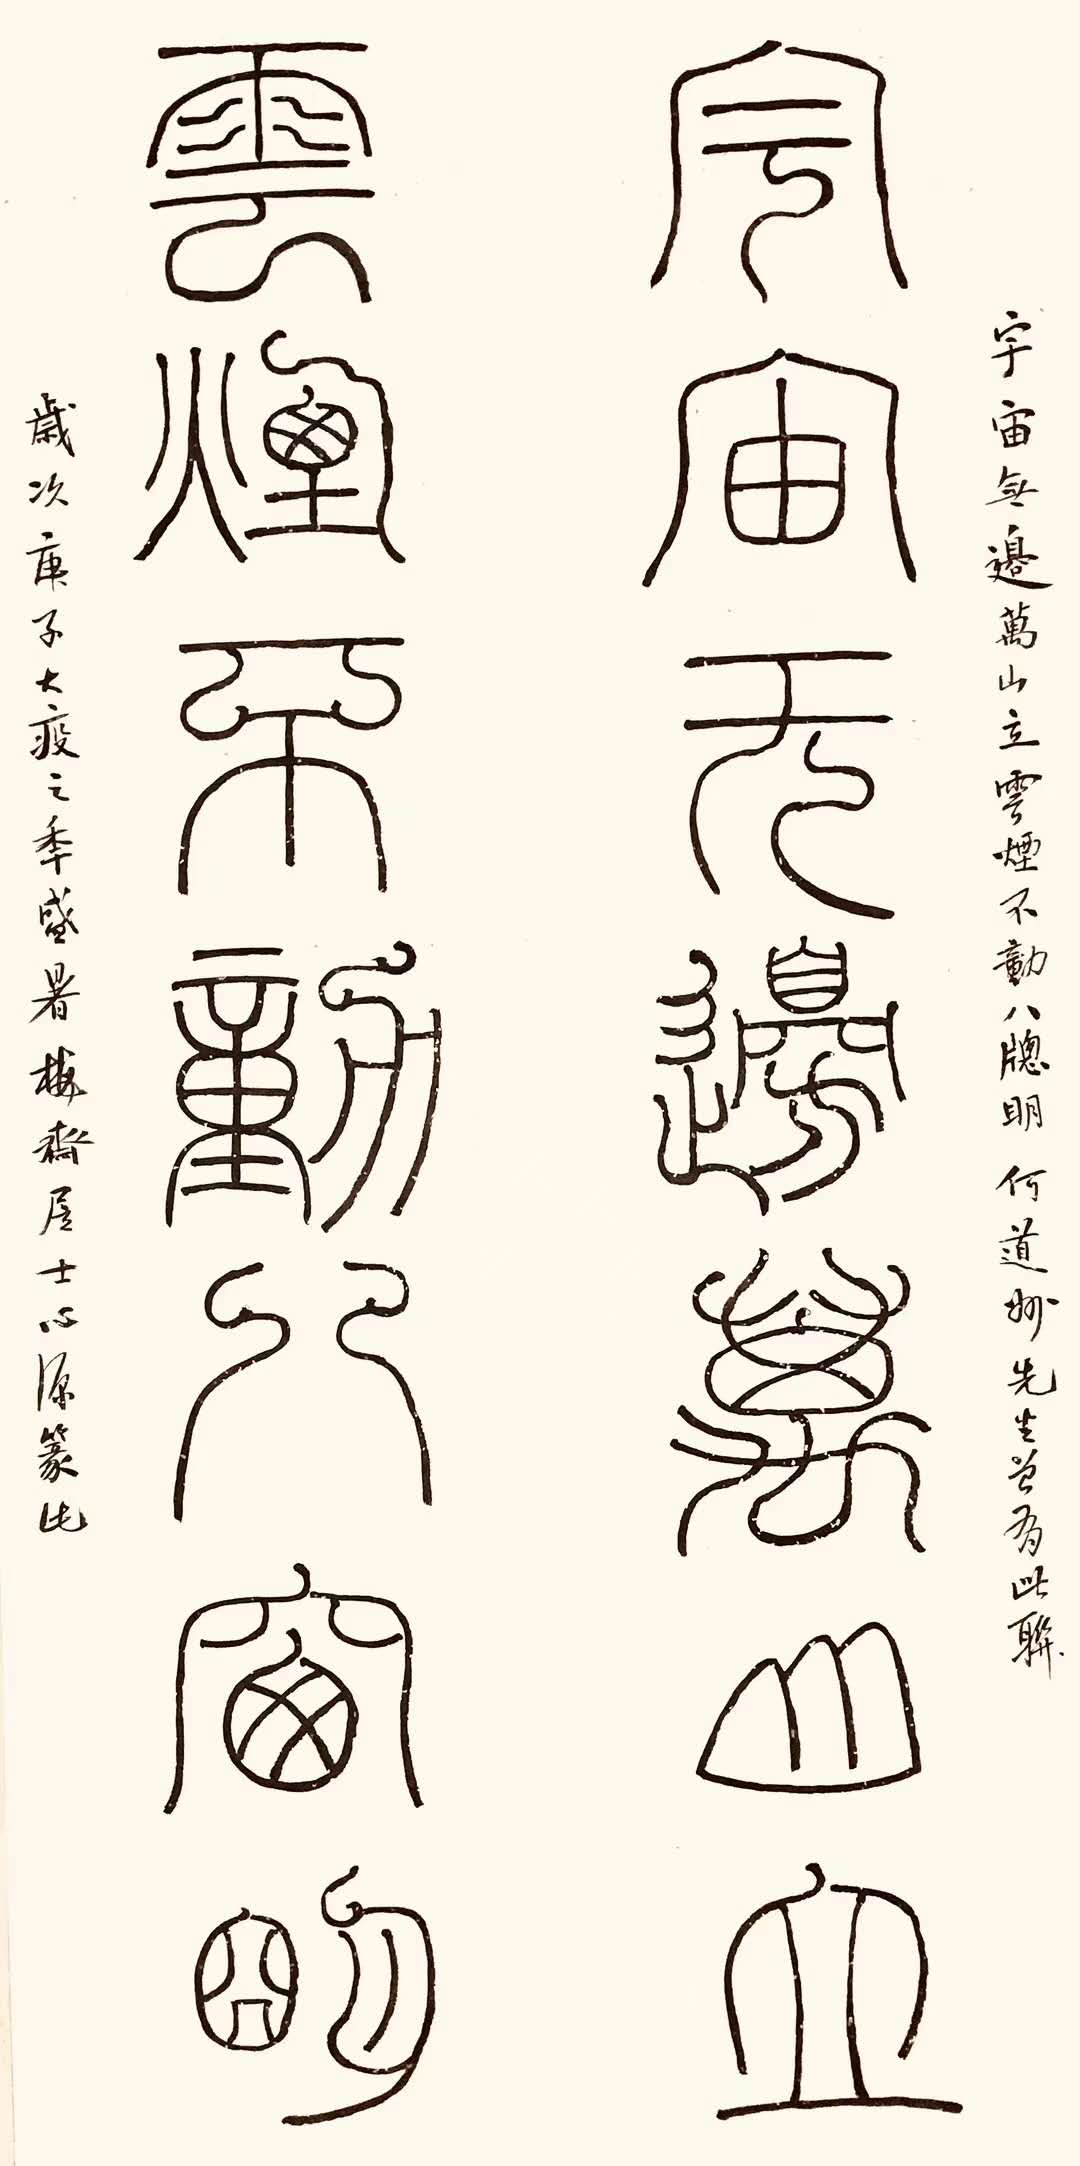 宇宙无邊萬山立
雲煙不動八窗明
宇宙無邊萬山立雲煙不動八牕明 何道州先生曾有此聯
歲次庚子大疫之年盛暑梅齋居士心源篆此